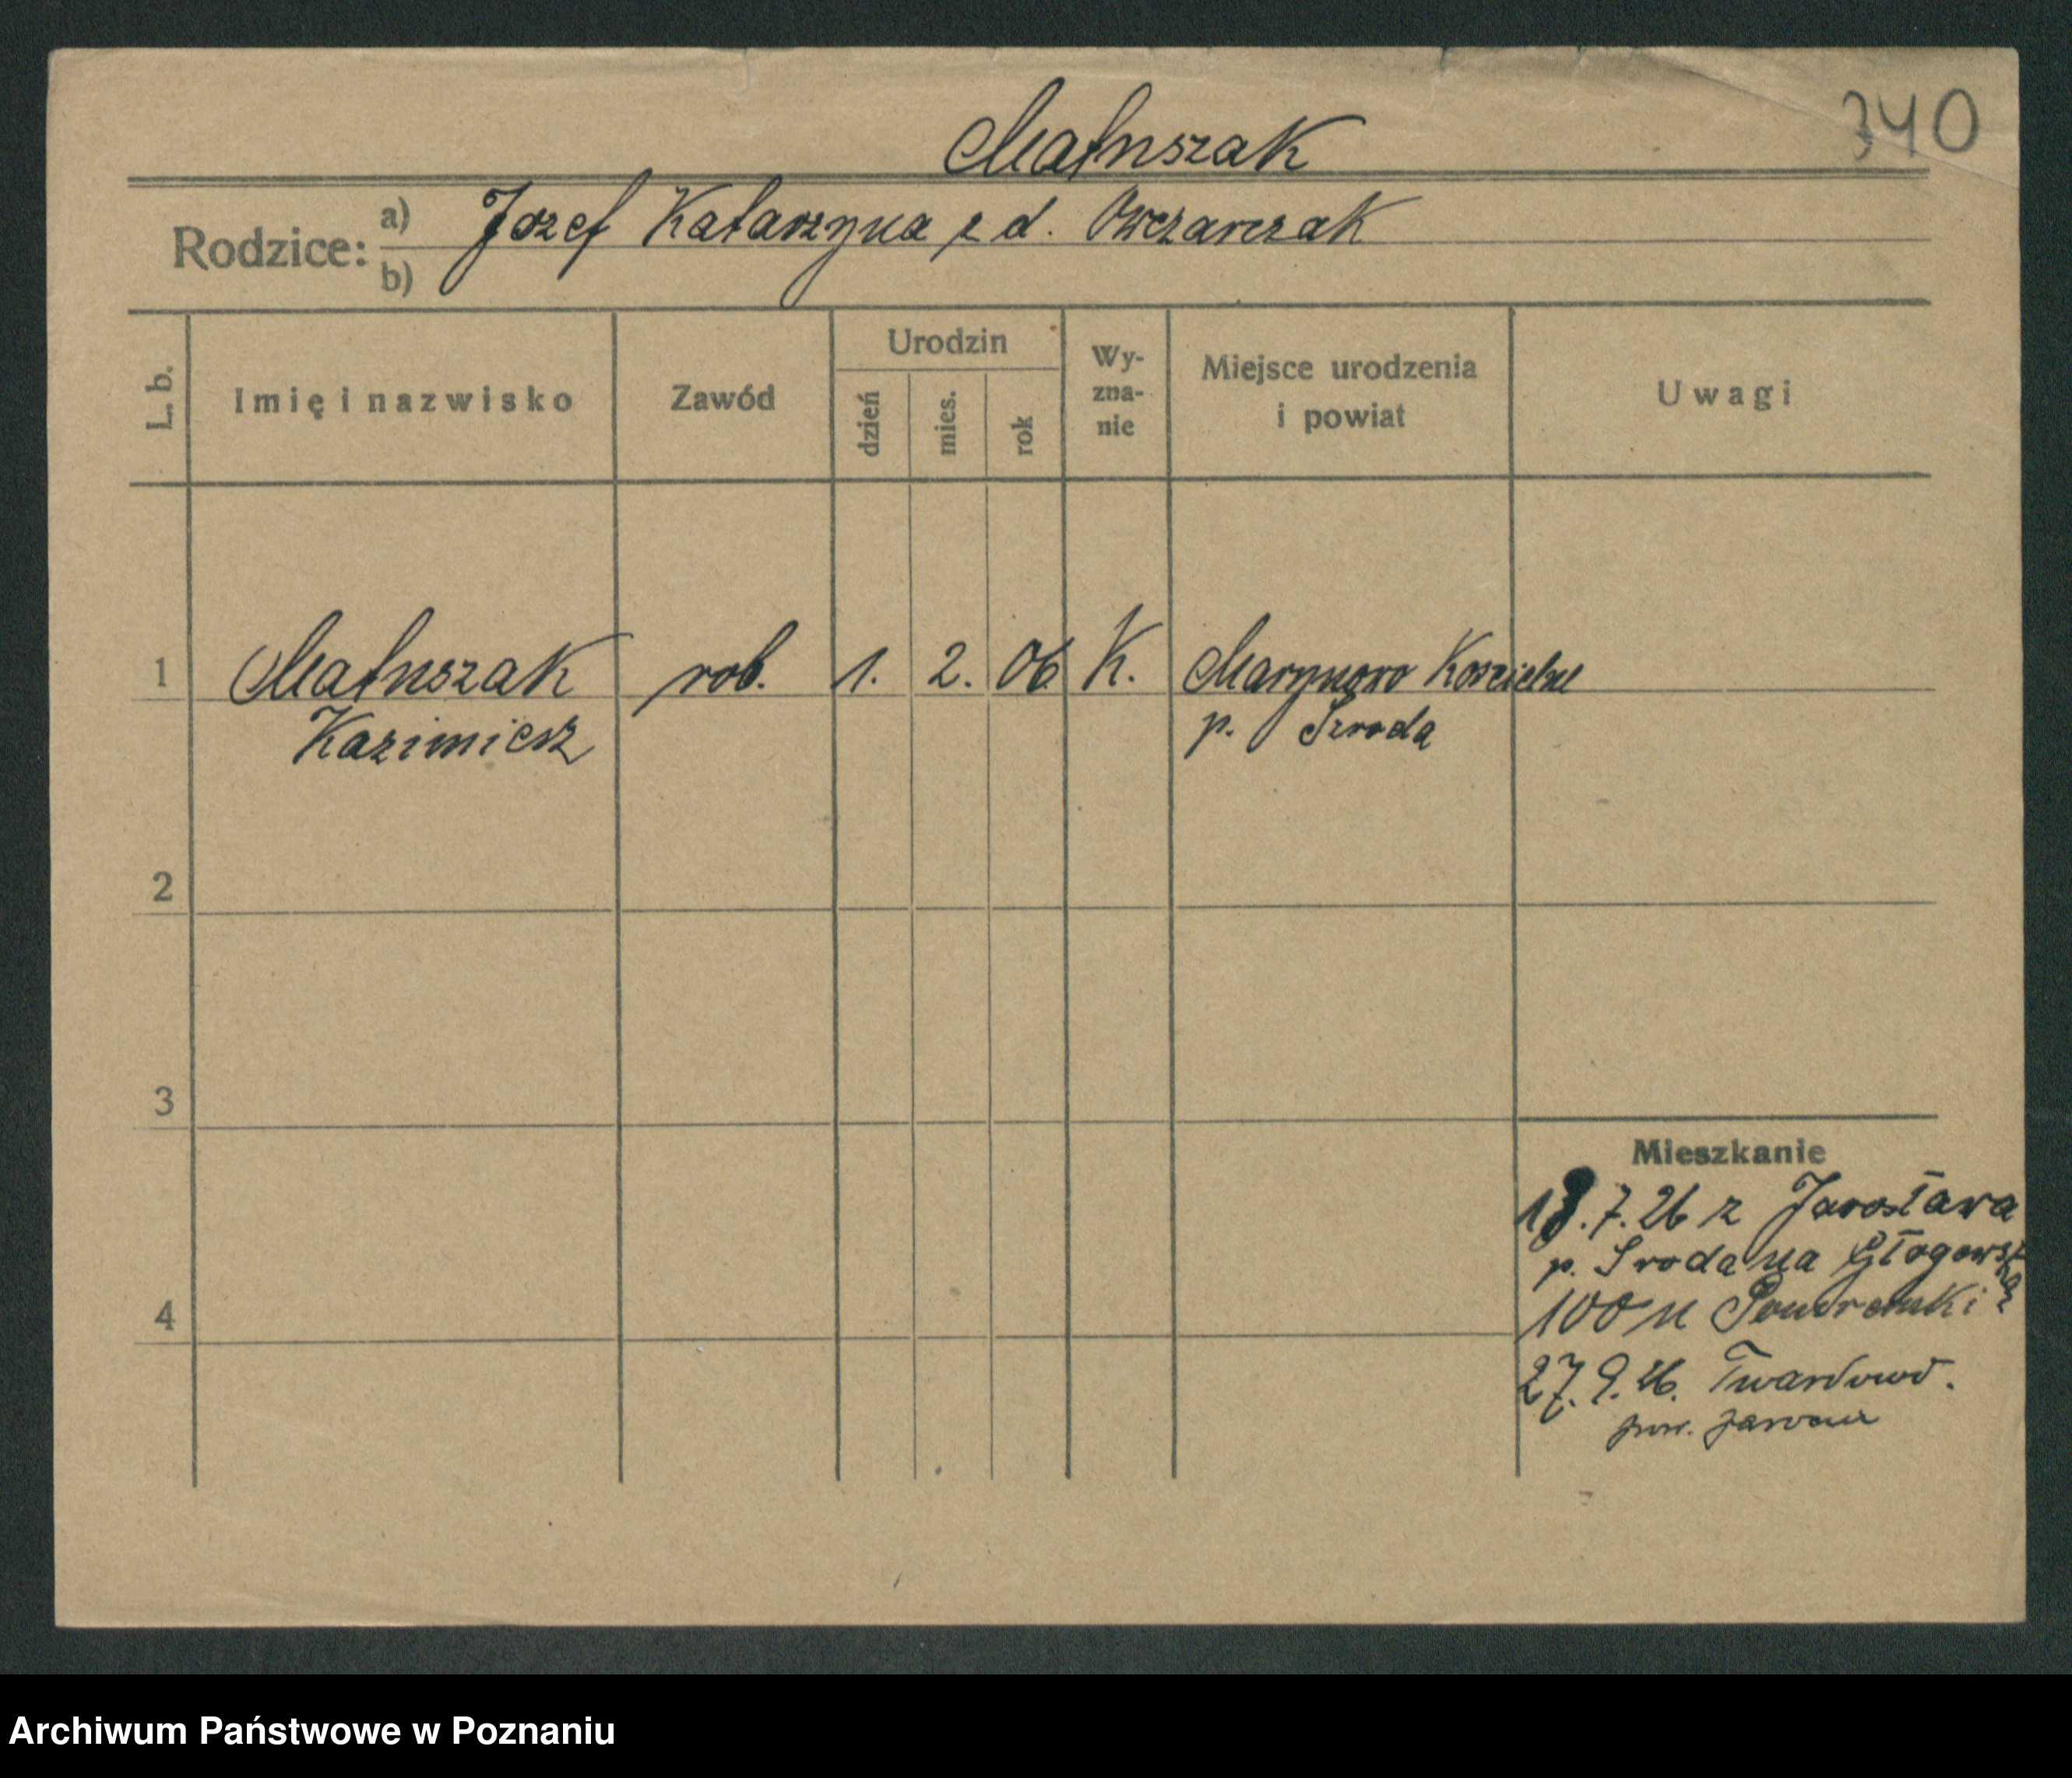 340
Matuszak
Rodzice: a) Jozef Katarzyna z d. Owczarczak
b)
L. b. Imię i nazwisko Zawód Urodzin dzień mies. rok Wy-zna-nie Miejsce urodzenia i powiat Uwagi
1 Matuszak rob. 1. 2. 06 K. Marynowo Koscielne
Kazimierz p. Szroda
2
3
Mieszkanie
18.7.26 z Jarosława
p. Sroda na Głogowską
4 100 u
27.9.26. Twardowo.
pow. Jarocin
Archiwum Państwowe w Poznaniu